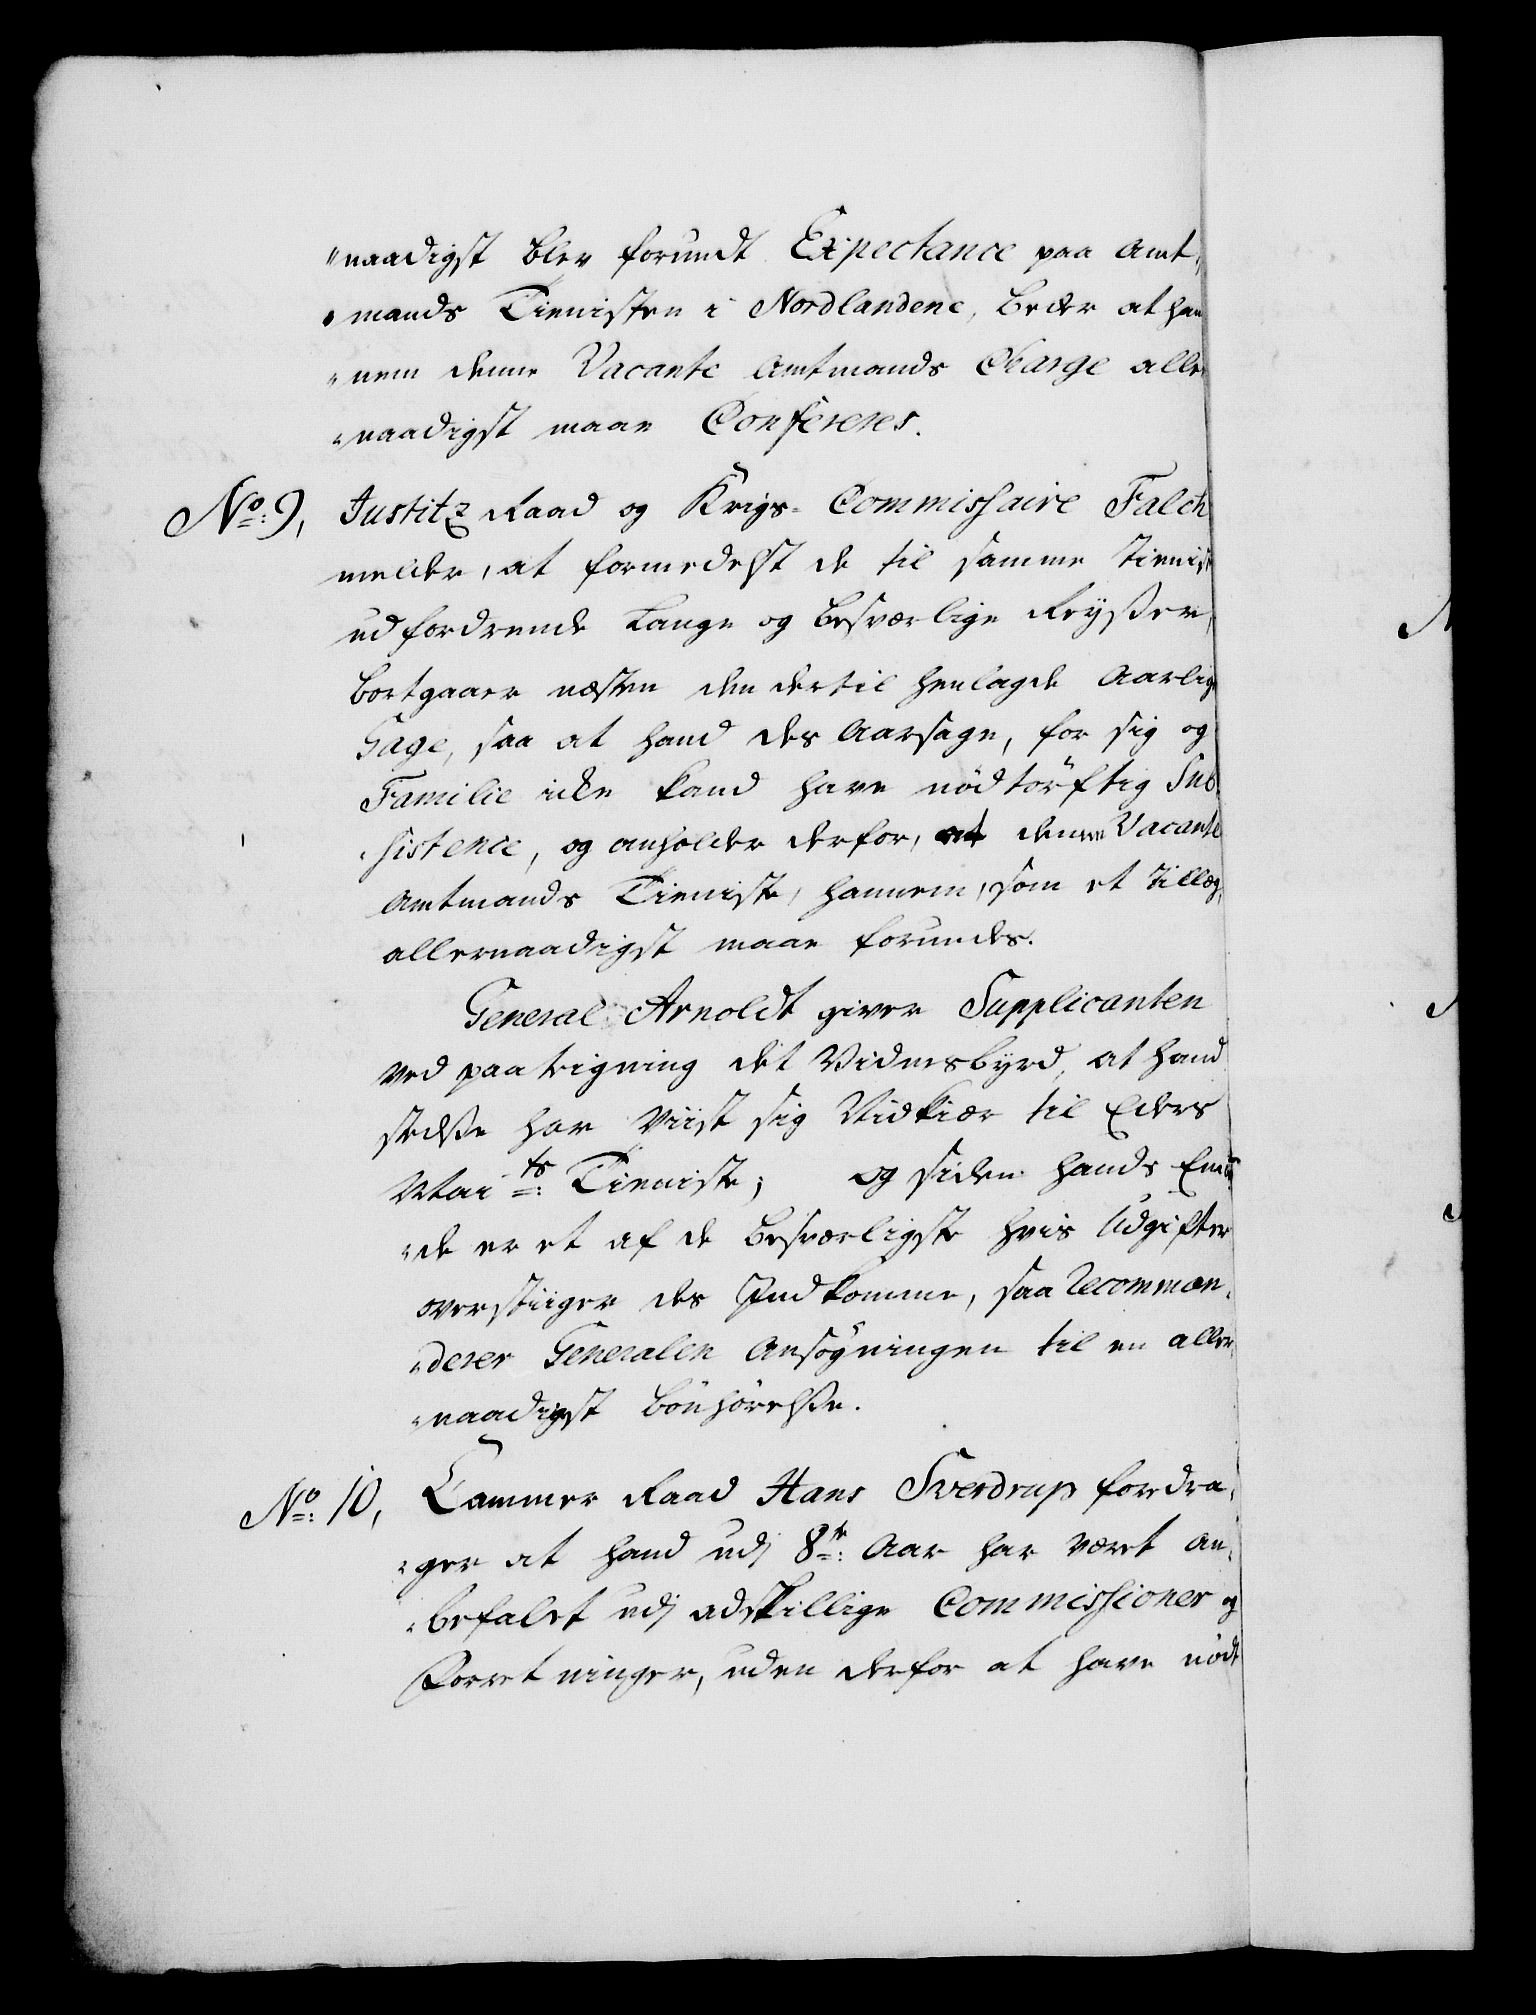 "naadigst blev forundt Expectance paa Amt,
"mands Tienisten i Nordlandene, beder at han
"nem denne Vacante Amtmands Charge aller
"naadigst maae Confereres.
No: 9, Justitz Raad og Krigs-Commissaire Falch
melder, at formedelst de til samme Tienist
udfordrende Lange og besværlige Reyßer,
bortgaaer næsten den dertil henlagde Aarlig
Gage, saa at hand des Aarsage, for sig og
Familie icke kand have nödtörftig Sub
"sistence, og anholder derfor, at denne Vacante
Amtmands Tieniste, hannem, som et Tillæg,
allernaadigst maae forundes.
General Arnoldt giver Supplicanten
ved paategning det Vidnesbyrd, at hand
stedße har Viist sig Nidkiær til Eders
Mai ts: Tieniste; og siden hands Em
"de er et af de besværligste hvis Udgifter
overstiiger des Indkomme, saa recommen,
"derer Generalen Ansögningen til en aller
"naadigst bönhörelße.
No: 10, Cammer Raad Hans Sverdrup fordra,
"ger at hand udj 8te: Aar har været an,
"befalet udj adskillige Commissioner og
Forretninger, uden derfor at have nödt